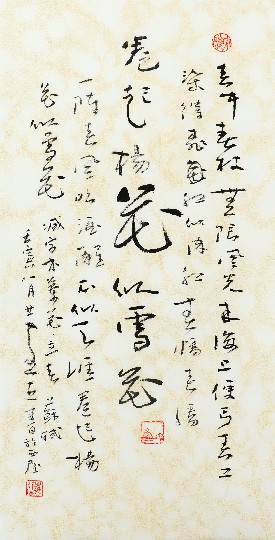 春牛春杖無限風光来海上便丐春工
染得桃紅似肉紅春幡春勝
卷起楊花似雪花
一陣春風吹酒醒不似天涯卷起楊
花似雪花
减字木蘭花立春 蘇軾
壬寅八月廿